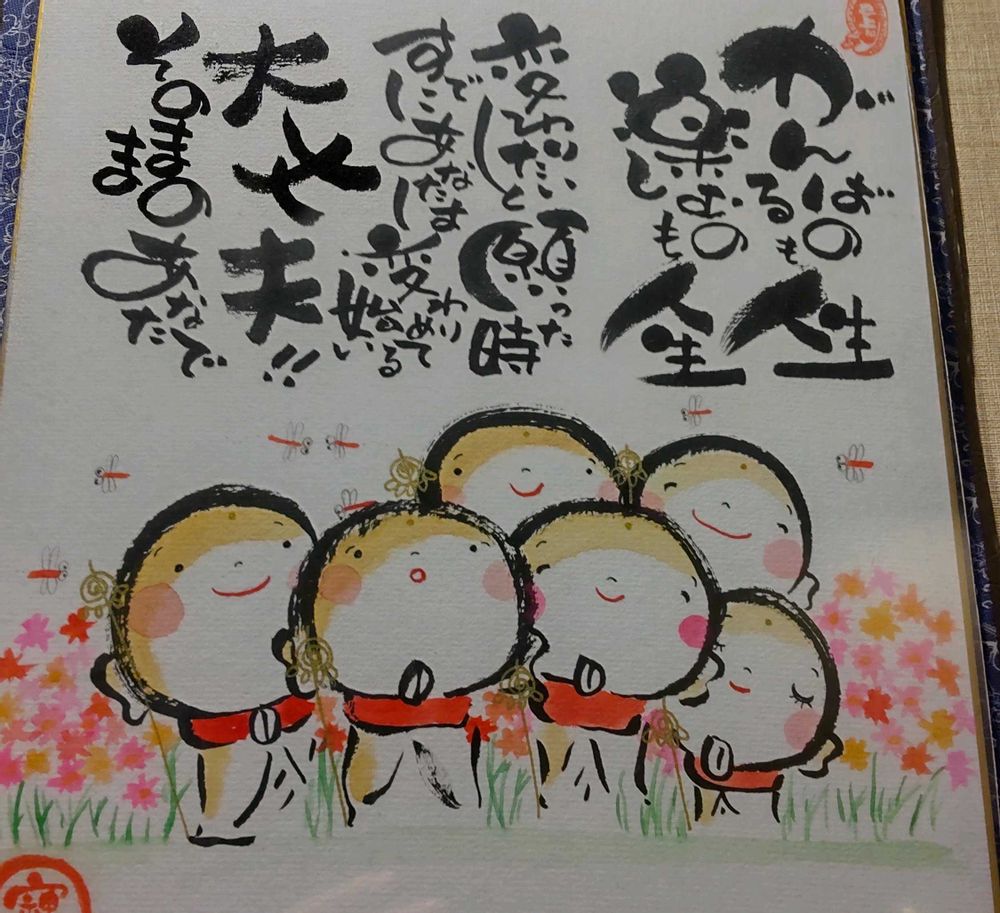 がんばるのも人生
楽しむのも人生
変わりたいと願った時
すでにあなたは変わり始めている
大丈夫!!
そのままのあなたで